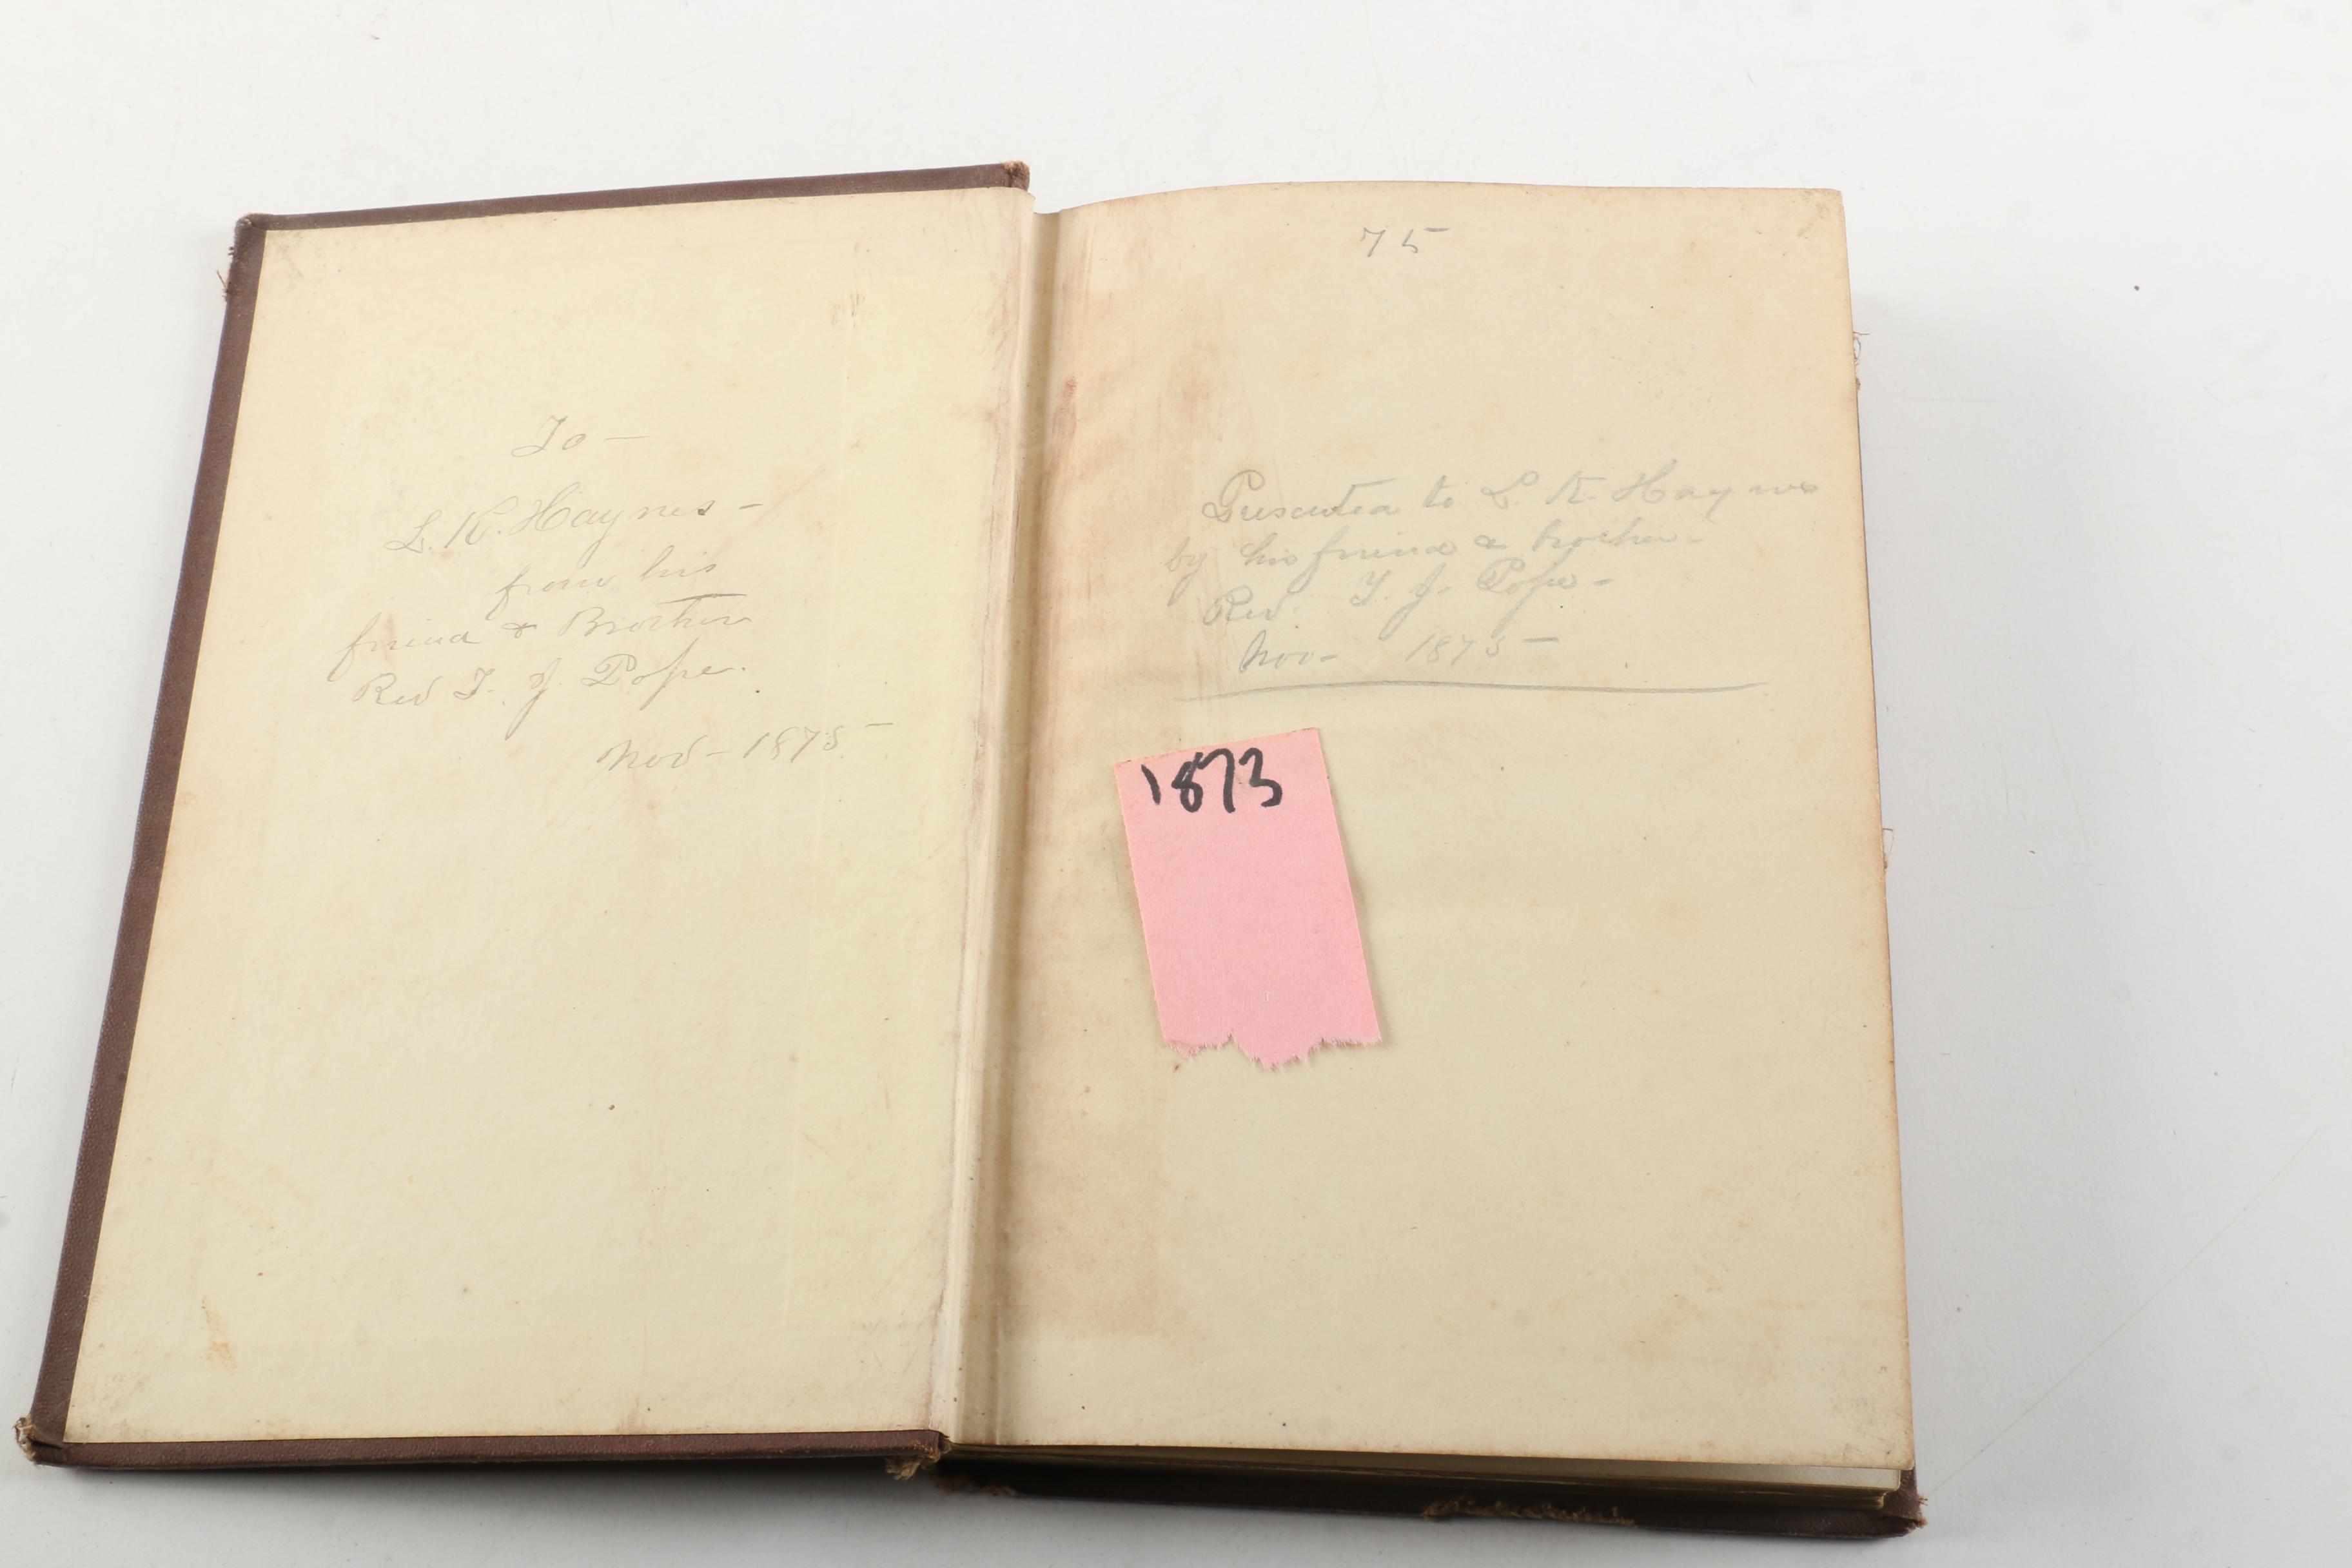 To —
L. K. Haynes —
from his
friend & Brother
Rev T. J Pope.
Nov — 1875 —
75
Presented to L. K. Haynes
by his friend & brother —
Rev. T. J. Pope —
Nov — 1875 —
1873